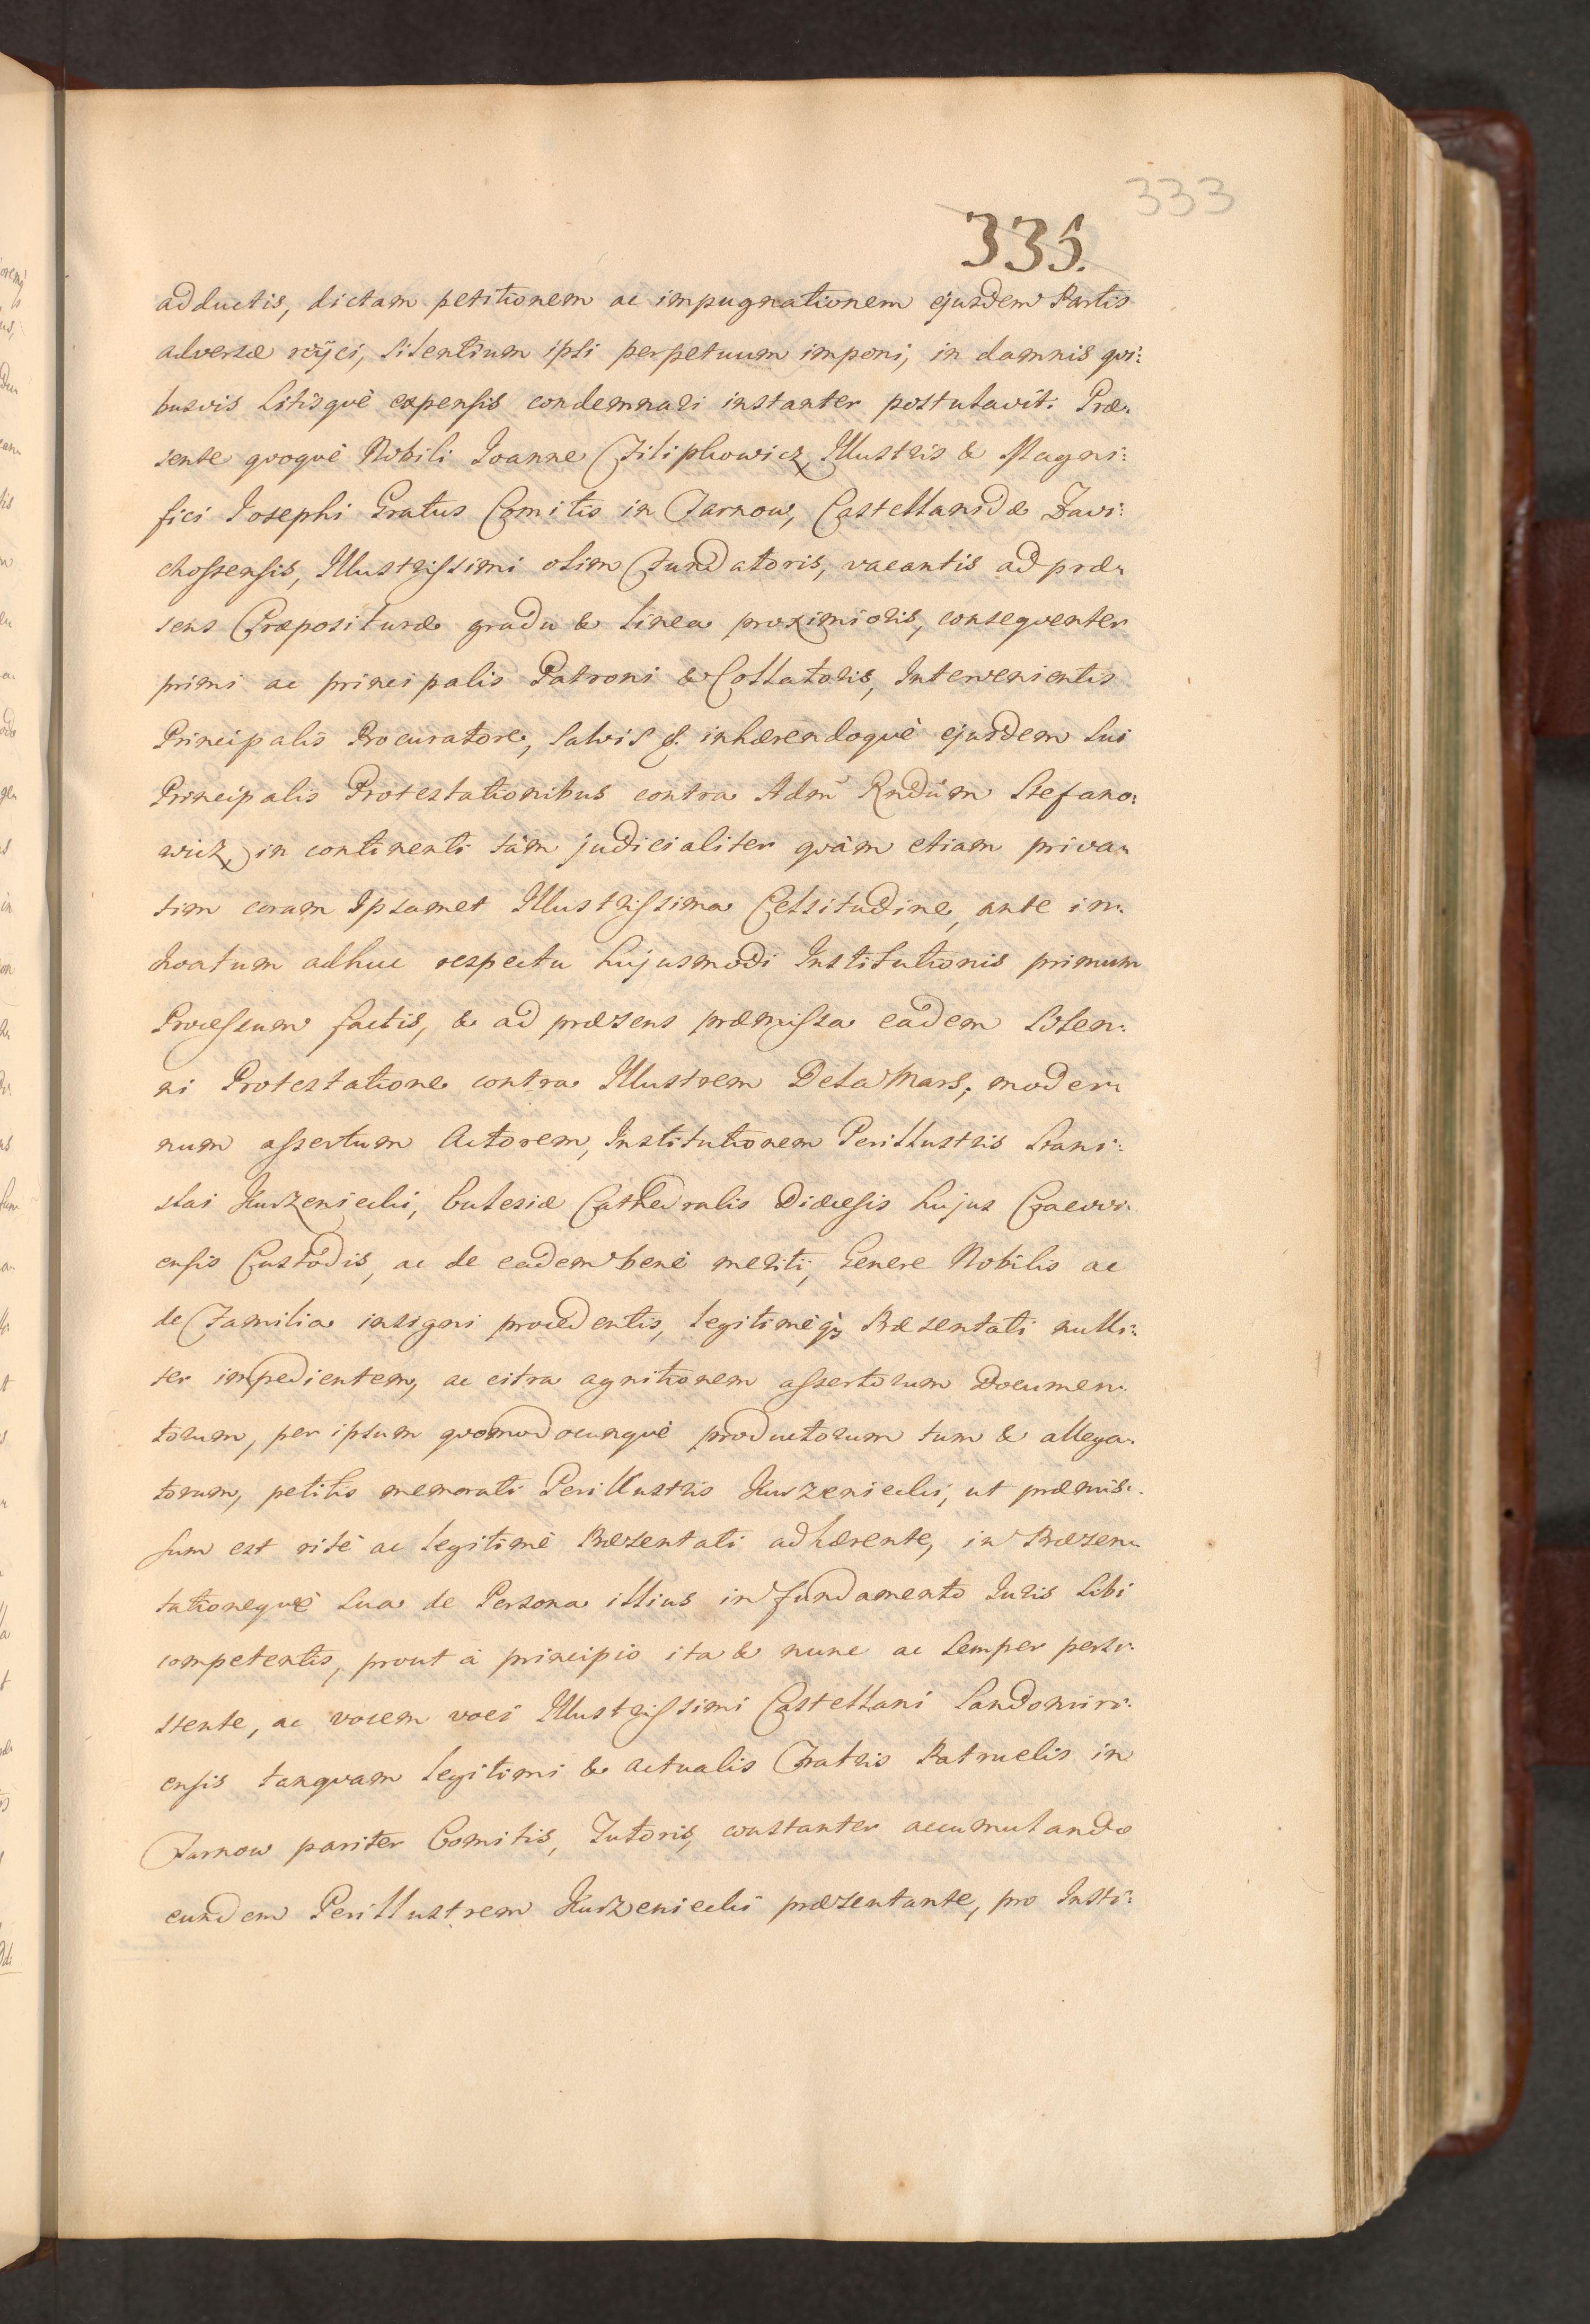 333
335.
adductis, dictam petitionem ac impugnationem ejusdem Partis
adversæ reijci, silentium ipsi perpetuum imponi, in damnis qvi:
busvis Litisqvè expensis condemnari instanter postulavit. Præ:
sente qvoqvè Nobili Joanne Filiphowicz, Illustris & Magni:
fici Josephi Gratus Comitis in Tarnow, Castellanidæ Zawi:
chostensis, Illustrissimi olim Fundatoris, vacantis ad præ:
sens Præpositurae gradu & linea proximioris, conseqventer
primi ac principalis Patroni & Collatoris, Intervenientis
Principalis Procuratore, salvis &. inhærendoqvè ejusdem sui
Principalis Protestationibus contra Adm Rndum Stefano:
wicz, in continenti tàm judicialiter qvàm etiam priva:
tim coram Ipsamet Illustrissima Celsitudine, ante in:
choatum adhuc respectu hujusmodi Institutionis primum
Processum factis, & ad præsens præmissa eadem solen:
ni Protestatione contra Illustrem DelaMars, moder:
num assertum Actorem, Institutionem Perillustris Stani:
slai Kurzeniecki, Eclesiæ Cathedralis Diæcesis hujus Cracovi:
ensis Custodis, ac de eadem benè meriti, Genere Nobilis ac
de Familia insigni procedentis, legitimèq; Præsentati nulli:
ter impedientem, ac citra agnitionem assertorum Documen:
torum, per ipsum qvomodocunqvè productorum tum & allega:
torum, petitis memorati Perillustris Kurzeniecki, ut præmis:
sum est ritè ac legitimè Præsentati adhærente, in Præsen:
tationeqvè sua de Persona illius in fundamento Juris sibi
competentis, prout à principio ita & nunc ac semper persi:
stente, ac vocem voci Illustrissimi Castellani Sandomiri:
ensis tanqvam legitimi & actualis Fratris Patruelis in
Tarnow pariter Comitis, Tutoris, constanter accumulando
eundem Perillustrem Kurzeniecki præsentante, pro Insti: